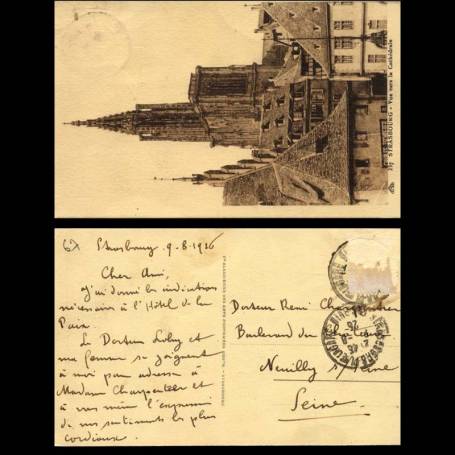 157 STRASBOURG - Vue vers la Cathédrale
Strasbourg 9-8-1926
Cher Ami,
J'ai donné les indications
nécessaires à l'Hôtel de la
Paix.
Le Docteur et
ma femme se joignent
à moi pour adresser à
Madame Charpentier et
à vous même l'expression
de nos sentiments les plus
cordiaux.
Docteur René Charpentier
Boulevard du
Neuilly s/Seine
Seine